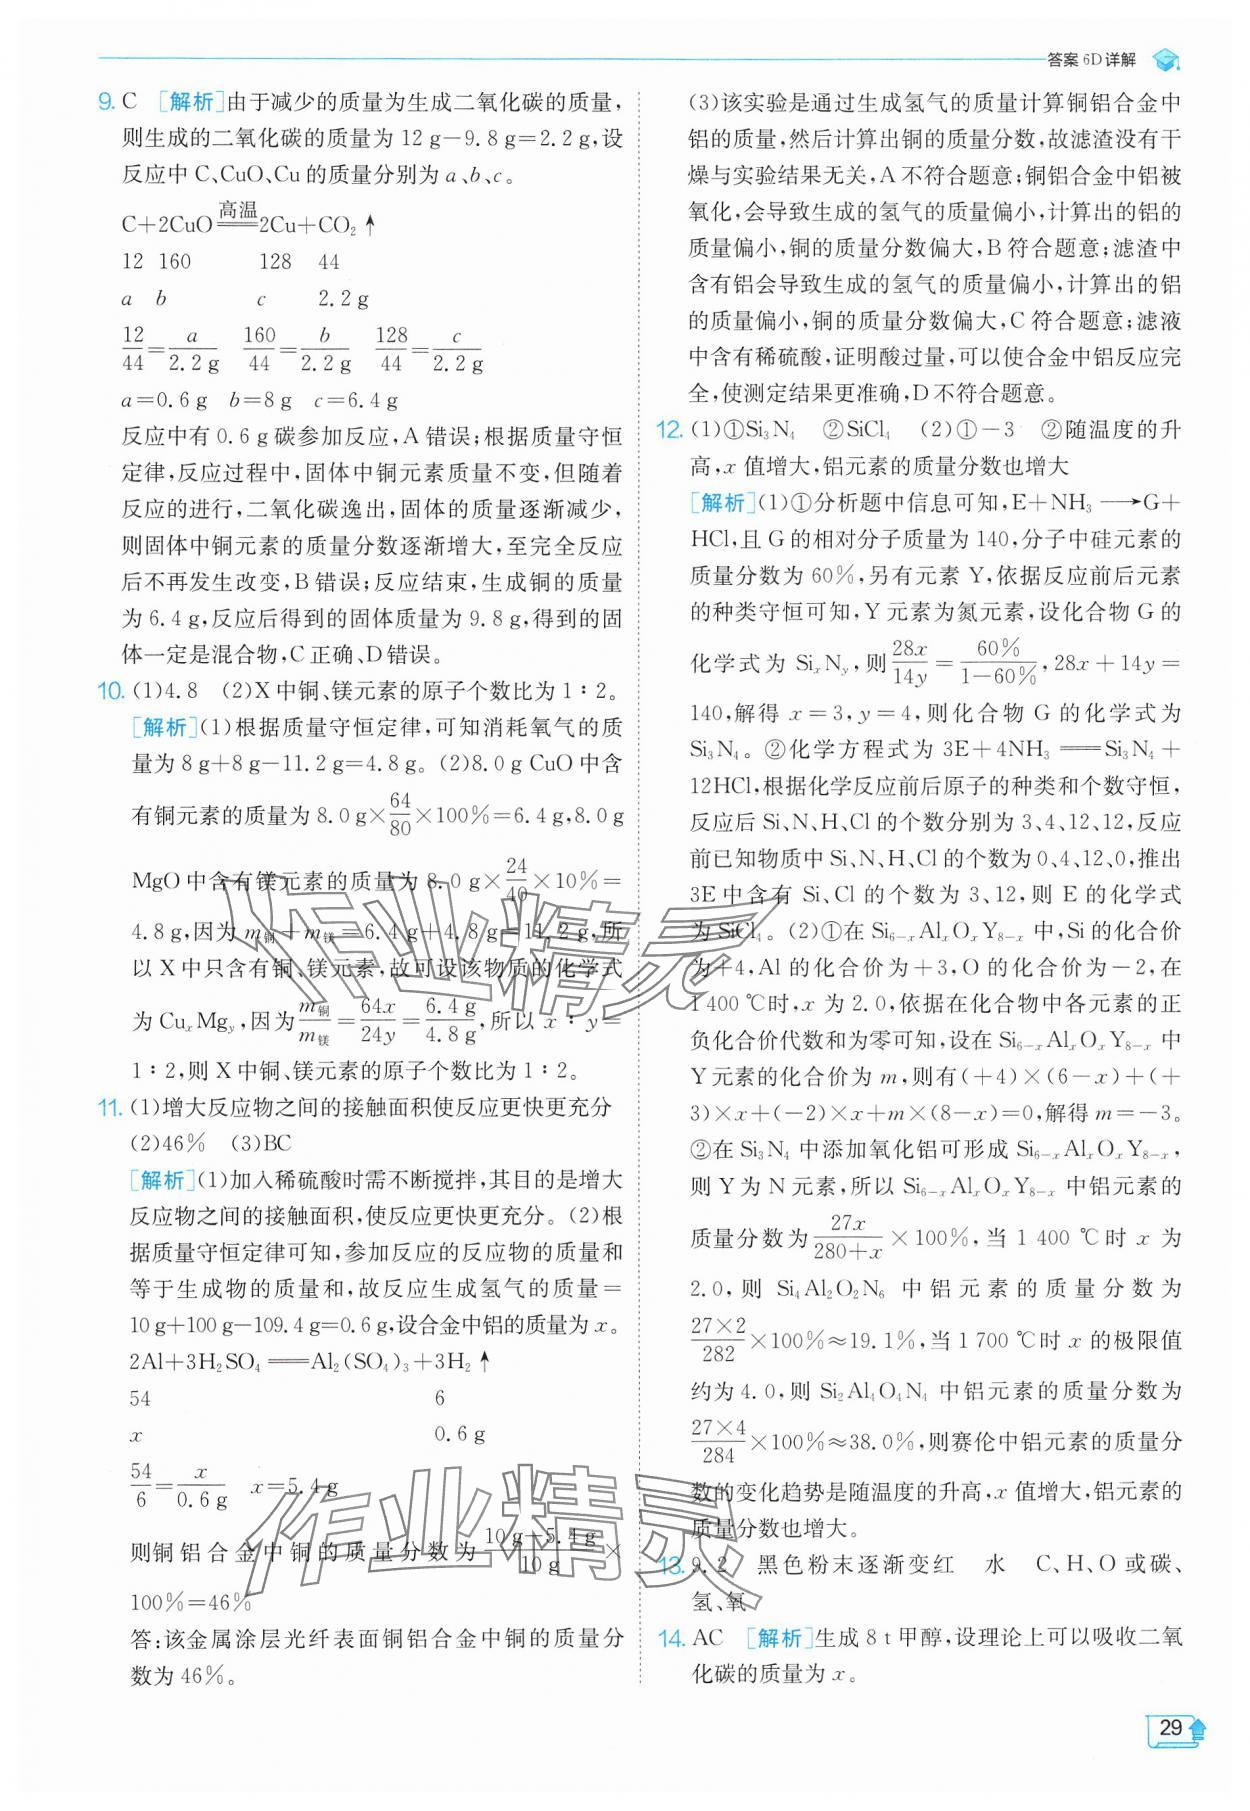 答案 6D详解
9. C [解析]由于减少的质量为生成二氧化碳的质量,
则生成的二氧化碳的质量为 12 g-9.8 g=2.2 g,设
反应中 C、CuO、Cu 的质量分别为 a、b、c。
C+2CuO =高温= 2Cu+CO₂↑
12 160 128 44
a b c 2.2 g
12/44=a/2.2 g 160/44=b/2.2 g 128/44=c/2.2 g
a=0.6 g b=8 g c=6.4 g
反应中有 0.6 g 碳参加反应,A 错误;根据质量守恒
定律,反应过程中,固体中铜元素质量不变,但随着
反应的进行,二氧化碳逸出,固体的质量逐渐减少,
则固体中铜元素的质量分数逐渐增大,至完全反应
后不再发生改变,B 错误;反应结束,生成铜的质量
为 6.4 g,反应后得到的固体质量为 9.8 g,得到的固
体一定是混合物,C 正确、D 错误。
10. (1)4.8 (2)X 中铜、镁元素的原子个数比为 1∶2。
[解析](1)根据质量守恒定律,可知消耗氧气的质
量为 8 g+8 g-11.2 g=4.8 g。(2)8.0 g CuO 中含
有铜元素的质量为 8.0 g×64/80×100%=6.4 g,8.0 g
MgO 中含有镁元素的质量为 8.0 g×24/40×10%=
4.8 g,因为 m铜+m镁=6.4 g+4.8 g=11.2 g,所
以 X 中只含有铜、镁元素,故可设该物质的化学式
为 CuₓMgᵧ,因为 m铜/m镁=64x/24y=6.4 g/4.8 g,所以 x∶y=
1∶2,则 X 中铜、镁元素的原子个数比为 1∶2。
11. (1)增大反应物之间的接触面积使反应更快更充分
(2)46% (3)BC
[解析](1)加入稀硫酸时需不断搅拌,其目的是增大
反应物之间的接触面积,使反应更快更充分。(2)根
据质量守恒定律可知,参加反应的反应物的质量和
等于生成物的质量和,故反应生成氢气的质量=
10 g+100 g-109.4 g=0.6 g,设合金中铝的质量为 x。
2Al+3H₂SO₄══Al₂(SO₄)₃+3H₂↑
54 6
x 0.6 g
54/6=x/0.6 g x=5.4 g
则铜铝合金中铜的质量分数为 (10 g-5.4 g)/10 g ×
100%=46%
答:该金属涂层光纤表面铜铝合金中铜的质量分
数为 46%。
(3)该实验是通过生成氢气的质量计算铜铝合金中
铝的质量,然后计算出铜的质量分数,故滤渣没有干
燥与实验结果无关,A 不符合题意;铜铝合金中铝被
氧化,会导致生成的氢气的质量偏小,计算出的铝的
质量偏小,铜的质量分数偏大,B 符合题意;滤渣中
含有铝会导致生成的氢气的质量偏小,计算出的铝
的质量偏小,铜的质量分数偏大,C 符合题意;滤液
中含有稀硫酸,证明酸过量,可以使合金中铝反应完
全,使测定结果更准确,D 不符合题意。
12. (1)①Si₃N₄ ②SiCl₄ (2)①-3 ②随温度的升
高,x 值增大,铝元素的质量分数也增大
[解析](1)①分析题中信息可知,E+NH₃⟶G+
HCl,且 G 的相对分子质量为 140,分子中硅元素的
质量分数为 60%,另有元素 Y,依据反应前后元素
的种类守恒可知,Y 元素为氮元素,设化合物 G 的
化学式为 SiₓNᵧ,则 28x/14y=60%/(1-60%),28x+14y=
140,解得 x=3,y=4,则化合物 G 的化学式为
Si₃N₄。②化学方程式为 3E+4NH₃══Si₃N₄+
12HCl,根据化学反应前后原子的种类和个数守恒,
反应后 Si、N、H、Cl 的个数分别为 3、4、12、12,反应
前已知物质中 Si、N、H、Cl 的个数为 0、4、12、0,推出
3E 中含有 Si、Cl 的个数为 3、12,则 E 的化学式
为 SiCl₄。(2)①在 Si₆₋ₓAlₓOₓY₈₋ₓ 中,Si 的化合价
为+4,Al 的化合价为+3,O 的化合价为-2,在
1 400 ℃时,x 为 2.0,依据在化合物中各元素的正
负化合价代数和为零可知,设在 Si₆₋ₓAlₓOₓY₈₋ₓ 中
Y 元素的化合价为 m,则有(+4)×(6-x)+(+
3)×x+(-2)×x+m×(8-x)=0,解得 m=-3。
②在 Si₃N₄ 中添加氧化铝可形成 Si₆₋ₓAlₓOₓY₈₋ₓ,
则 Y 为 N 元素,所以 Si₆₋ₓAlₓOₓY₈₋ₓ 中铝元素的
质量分数为 27x/(280+x)×100%,当 1 400 ℃时 x 为
2.0,则 Si₄Al₂O₂N₆ 中铝元素的质量分数为
27×2/282×100%≈19.1%,当 1 700 ℃时 x 的极限值
约为 4.0,则 Si₂Al₄O₄N₄ 中铝元素的质量分数为
27×4/284×100%≈38.0%,则赛伦中铝元素的质量分
数的变化趋势是随温度的升高,x 值增大,铝元素的
质量分数也增大。
13. 9.2 黑色粉末逐渐变红 水 C、H、O 或碳、
氢、氧
14. AC [解析]生成 8 t 甲醇,设理论上可以吸收二氧
化碳的质量为 x。
29
作业精灵
作业精灵